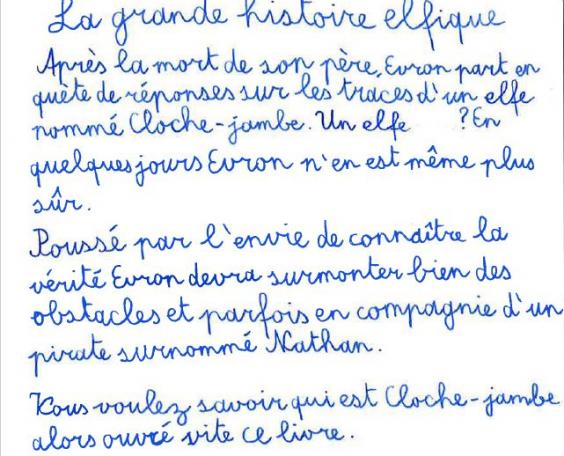 La grande histoire elfique
Après la mort de son père, Evron part en
quête de réponses sur les traces d'un elfe
nommé Cloche-jambe. Un elfe ? En
quelques jours Evron n'en est même plus
sûr.
Poussé par l'envie de connaître la
vérité Evron devra surmonter bien des
obstacles et parfois en compagnie d'un
pirate surnommé Nathan.
Vous voulez savoir qui est Cloche-jambe
alors ouvré vite ce livre.